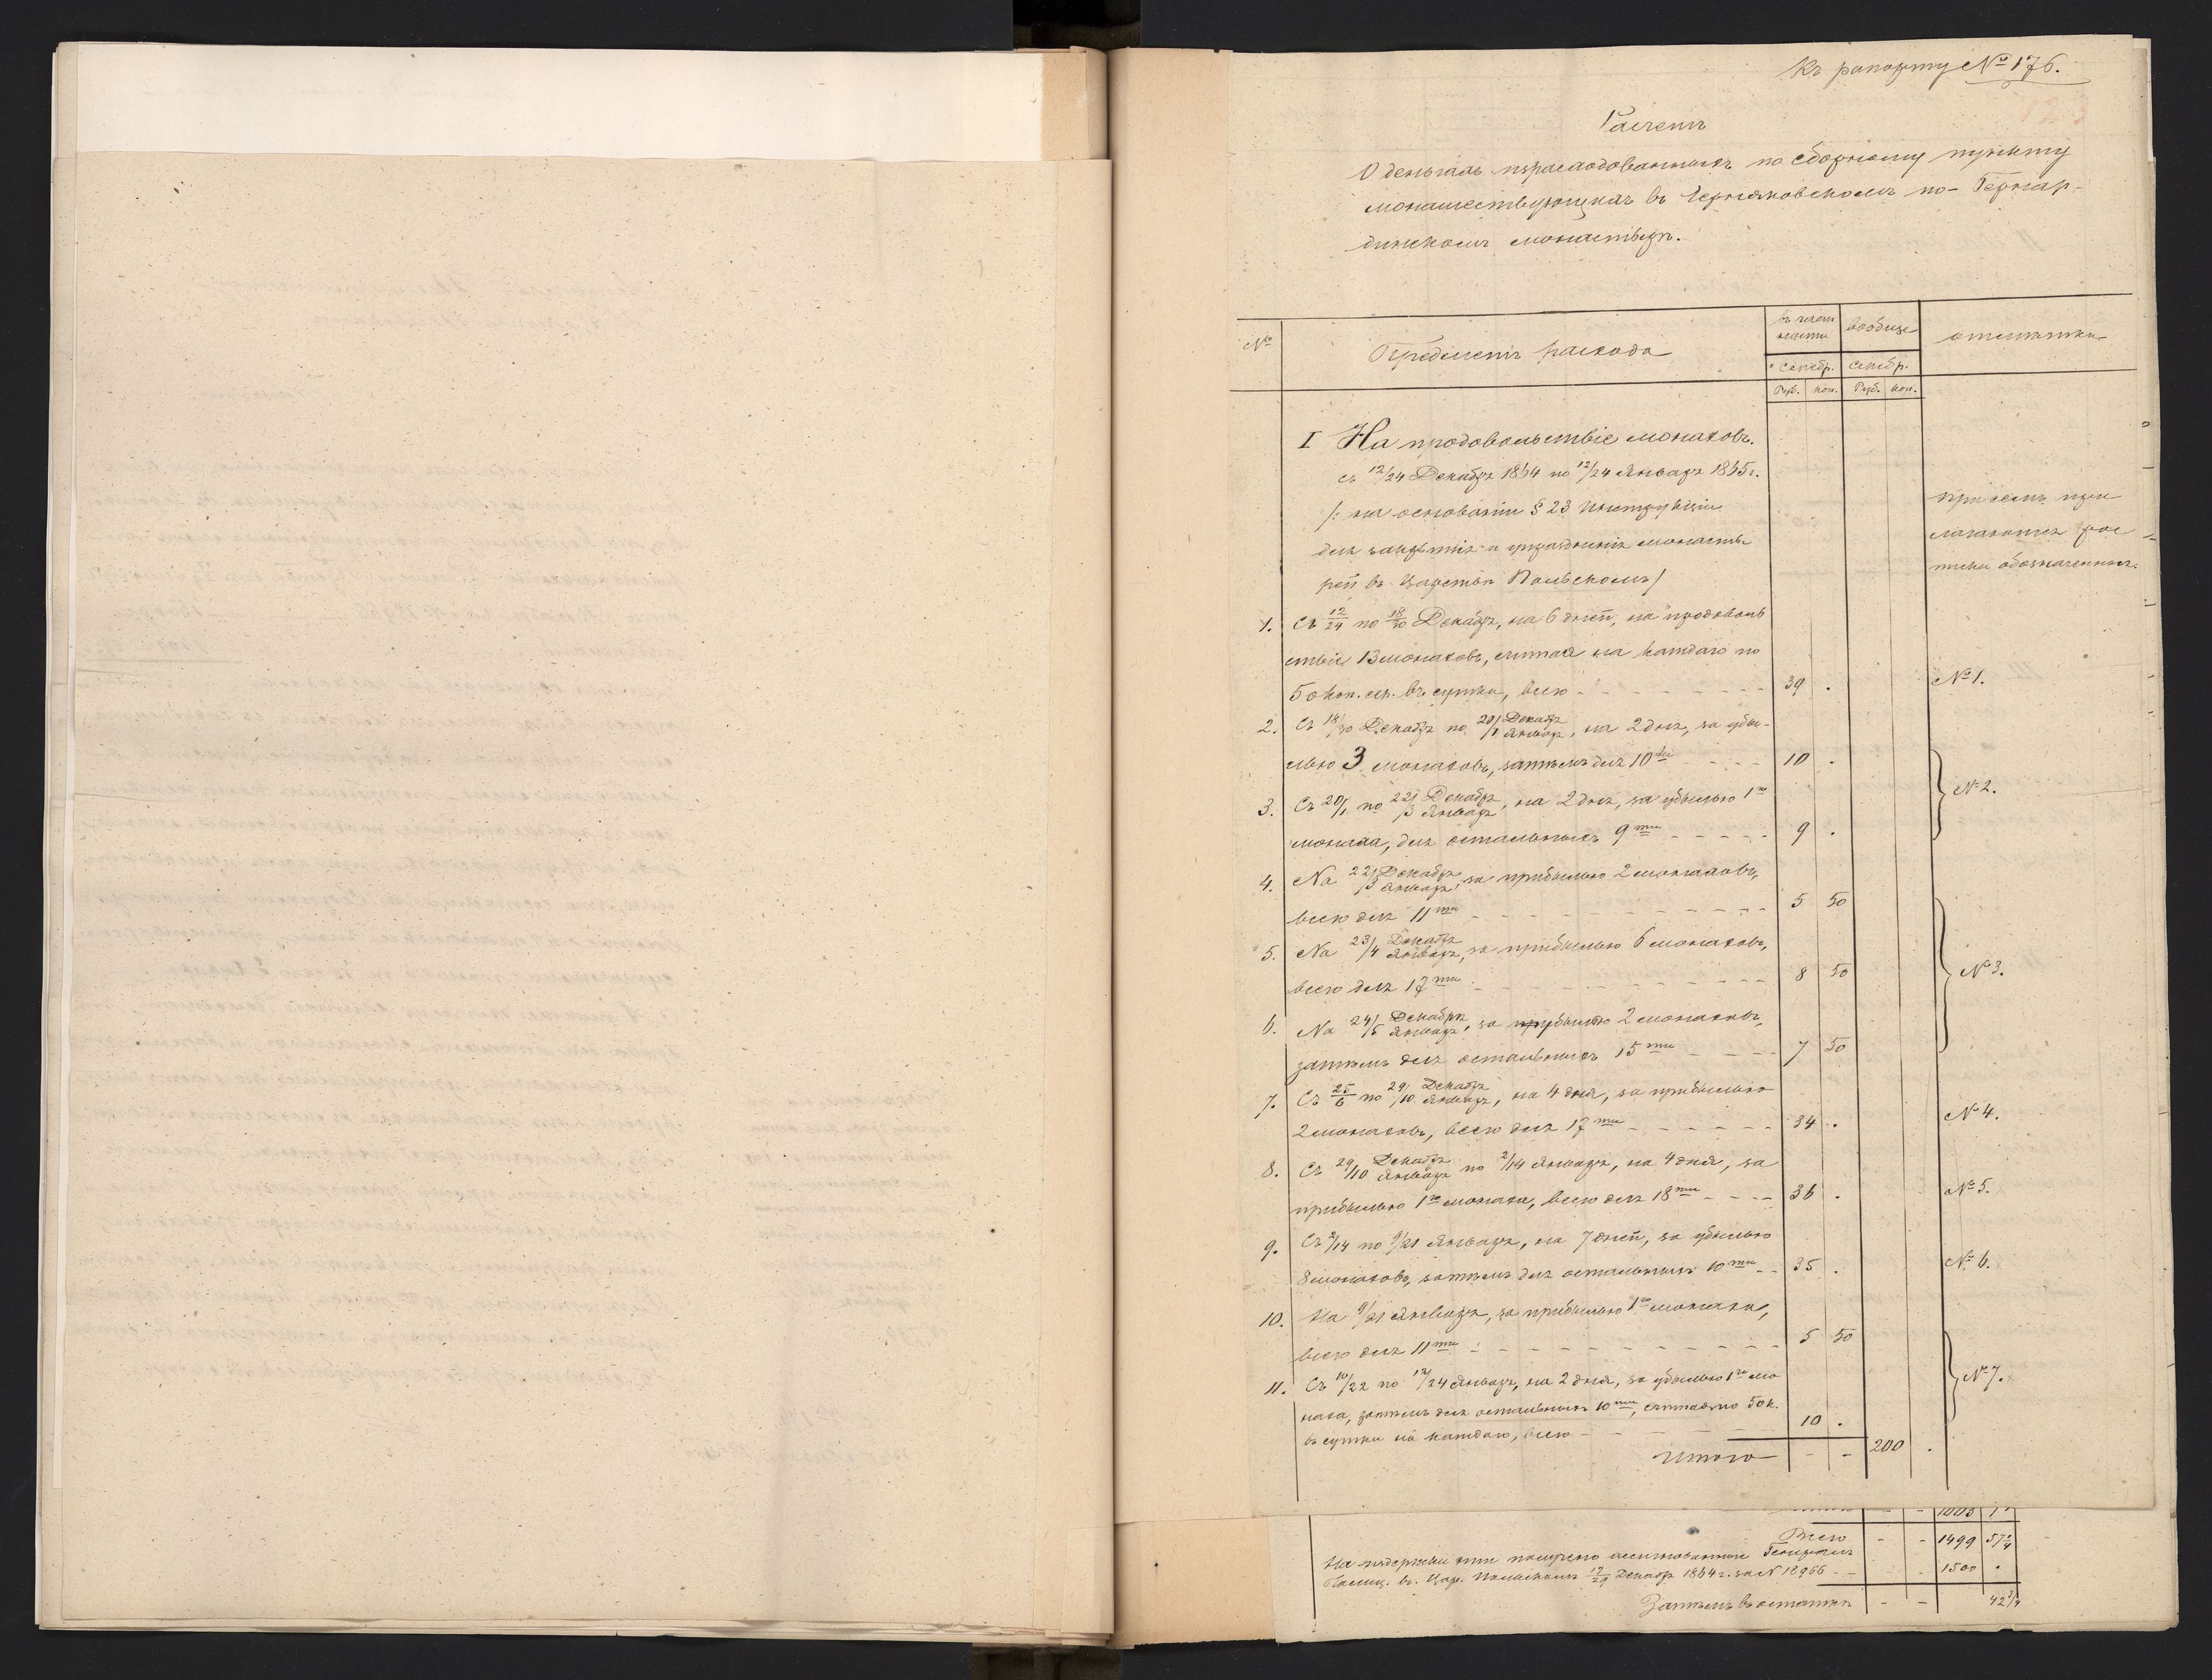 Къ рапорту № 176.
123
Расчетъ
О деньгахъ израсходованныхъ по сборному пункту
монашествующихъ въ Черняковскомъ по-Бернар-
динскомъ монастырѣ.
№ Предметъ расхода въ част ности вообще отмѣтки
Серебр. Серебр.
Руб. коп. Руб. коп.
I На продовольствіе монаховъ.
съ 12/24 Декабря 1864 по 12/24 Января 1865 г.
/: на основаніи § 23 Инструкціи
для закрытія и упраздненія монасты
рей въ Царствѣ Польскомъ/
При семъ при
лагаются рос
писки обозначенныя
1. Съ 12/24 по 18/30 Декабря, на 6 дней, на продоволь
ствіе 13 монаховъ, считая на каждаго по
50 коп. сер. въ сутки, всего - - - 39 . № 1.
2. Съ 18/30 Декабря по 20/1 Декабря Января, на 2 дня, за убы-
лью 3 монаховъ, затѣмъ для 10ти - - - 10 .
№ 2.
3. Съ 20/1 по 22/3 Декабря Января, на 2 дня, за убылью 1го
монаха, для остальныхъ 9ти - - - 9 .
4. На 22/3 Декабря Января, за прибылью 2 монаховъ,
всего для 11ти - - - 5 50
5. На 23/4 Декабря Января, за прибылью 6 монаховъ,
всего для 17ти - - - 8 50 № 3.
6. На 24/5 Декабря Января, за убылью 2 монаховъ,
затѣмъ для остальныхъ 15ти - - - 7 50
7. Съ 25/6 по 29/10 Декабря Января, на 4 дня, за прибылью
2 монаховъ, всего для 17ти - - - 34 . № 4.
8. Съ 29/10 Декабря Января по 2/14 Января, на 4 дня, за
прибылью 1го монаха, всего для 18ти - - - 36 . № 5.
9. Съ 2/14 по 9/21 Января, на 7 дней, за убылью
8 монаховъ, затѣмъ для остальныхъ 10ти - - 35 . № 6.
10. На 9/21 Января, за прибылью 1го монаха,
всего для 11ти - - - 5 50
№ 7.
11. Съ 10/22 по 12/24 Января, на 2 дня, за убылью 1го мо
наха, затѣмъ для остальныхъ 10ти, считая по 50 к.
въ сутки на каждаго, всего - - - 10 .
Итого - - 200 .
Всего - - 1499 57 1/4
На издержки эти получено ассигнованные Генералъ
Полиц. въ Цар. Польскомъ 17/29 Декабря 1864 г. за № 18966 - - 1500 .
Затѣмъ въ остаткѣ - - 42 3/4